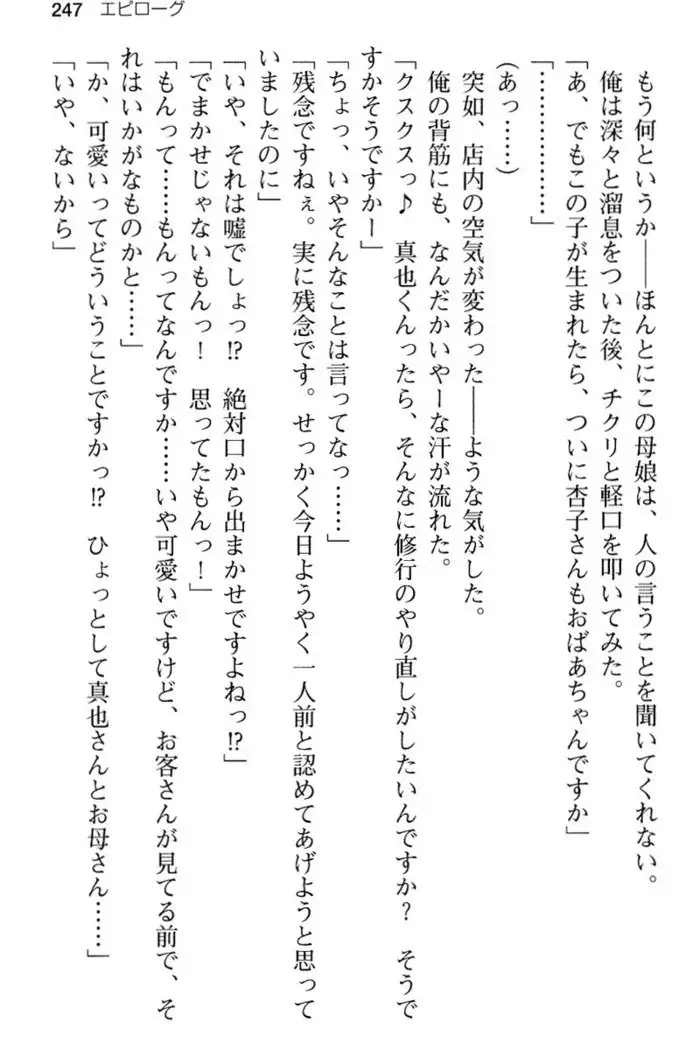 247 エピローグ
もう何というか――ほんとにこの母娘は、人の言うことを聞いてくれない。
俺は深々と溜息をついた後、チクリと軽口を叩いてみた。
「あ、でもこの子が生まれたら、ついに杏子さんもおばあちゃんですか」
「………………」
(あっ……)
突如、店内の空気が変わった――ような気がした。
俺の背筋にも、なんだかいやーな汗が流れた。
「クスクスっ♪ 真也くんったら、そんなに修行のやり直しがしたいんですか? そうで
すかそうですかー」
「ちょっ、いやそんなことは言ってなっ……」
「残念ですねぇ。実に残念です。せっかく今日ようやく一人前と認めてあげようと思って
いましたのに」
「いや、それは嘘でしょっ!? 絶対口から出まかせですよねっ!?」
「でまかせじゃないもんっ! 思ってたもんっ!」
「もんって……もんってなんですか……いや可愛いですけど、お客さんが見てる前で、そ
れはいかがなものかと……」
「か、可愛いってどういうことですかっ!? ひょっとして真也さんとお母さん……」
「いや、ないから」